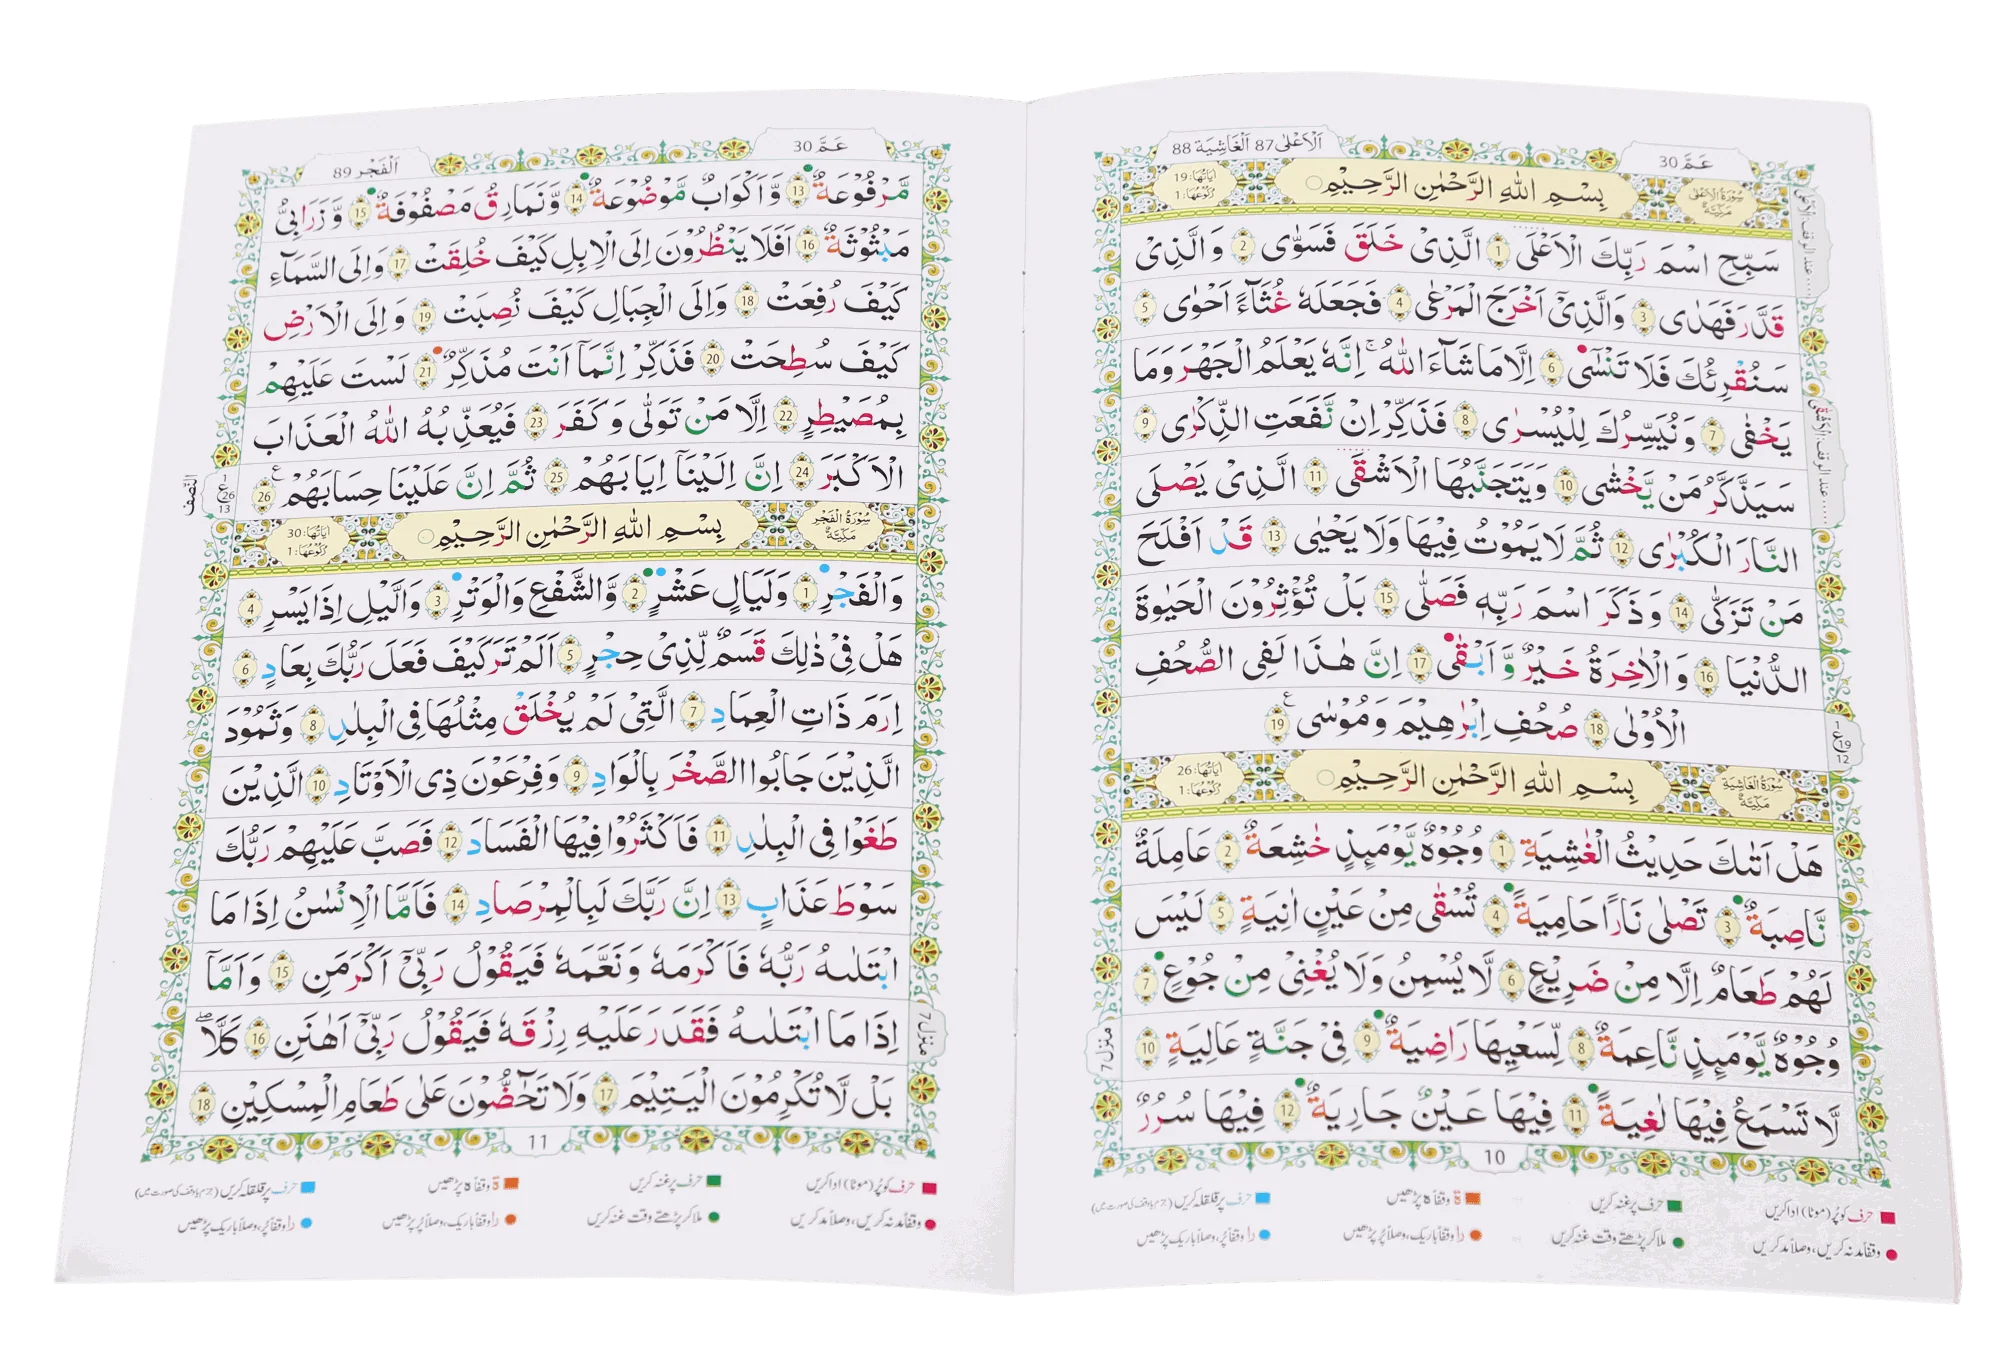 عَمَّ 30
اَلْاَعْلٰى 87 اَلْغَاشِيَة 88
سُوْرَةُ الْاَعْلٰى مَكِّيَّةٌ
بِسْمِ اللّٰهِ الرَّحْمٰنِ الرَّحِيْمِ ○
اٰيَاتُهَا: 19 رُكُوْعُهَا: 1
سَبِّحِ اسْمَ رَبِّكَ الْاَعْلَى 1 الَّذِىْ خَلَقَ فَسَوّٰى 2 وَالَّذِىْ
قَدَّرَ فَهَدٰى 3 وَالَّذِىْٓ اَخْرَجَ الْمَرْعٰى 4 فَجَعَلَهٗ غُثَآءً اَحْوٰى 5
سَنُقْرِئُكَ فَلَا تَنْسٰٓى 6 اِلَّا مَا شَآءَ اللّٰهُ ؕ اِنَّهٗ يَعْلَمُ الْجَهْرَ وَمَا
يَخْفٰى 7 وَنُيَسِّرُكَ لِلْيُسْرٰى 8 فَذَكِّرْ اِنْ نَّفَعَتِ الذِّكْرٰى 9
سَيَذَّكَّرُ مَنْ يَّخْشٰى 10 وَيَتَجَنَّبُهَا الْاَشْقَى 11 الَّذِىْ يَصْلَى
النَّارَ الْكُبْرٰى 12 ثُمَّ لَا يَمُوْتُ فِيْهَا وَلَا يَحْيٰى 13 قَدْ اَفْلَحَ
مَنْ تَزَكّٰى 14 وَذَكَرَ اسْمَ رَبِّهٖ فَصَلّٰى 15 بَلْ تُؤْثِرُوْنَ الْحَيٰوةَ
الدُّنْيَا 16 وَالْاٰخِرَةُ خَيْرٌ وَّاَبْقٰى 17 اِنَّ هٰذَا لَفِى الصُّحُفِ
الْاُوْلٰى 18 صُحُفِ اِبْرٰهِيْمَ وَمُوْسٰى 19
ع 1 19 12
سُوْرَةُ الْغَاشِيَةِ مَكِّيَّةٌ
بِسْمِ اللّٰهِ الرَّحْمٰنِ الرَّحِيْمِ ○
اٰيَاتُهَا: 26 رُكُوْعُهَا: 1
هَلْ اَتٰىكَ حَدِيْثُ الْغٰشِيَةِ 1 وُجُوْهٌ يَّوْمَئِذٍ خٰشِعَةٌ 2 عَامِلَةٌ
نَّاصِبَةٌ 3 تَصْلٰى نَارًا حَامِيَةً 4 تُسْقٰى مِنْ عَيْنٍ اٰنِيَةٍ 5 لَيْسَ
لَهُمْ طَعَامٌ اِلَّا مِنْ ضَرِيْعٍ 6 لَّا يُسْمِنُ وَلَا يُغْنِىْ مِنْ جُوْعٍ 7
وُجُوْهٌ يَّوْمَئِذٍ نَّاعِمَةٌ 8 لِّسَعْيِهَا رَاضِيَةٌ 9 فِىْ جَنَّةٍ عَالِيَةٍ 10
لَّا تَسْمَعُ فِيْهَا لٰغِيَةً 11 فِيْهَا عَيْنٌ جَارِيَةٌ 12 فِيْهَا سُرُرٌ
منزل 7
10
حرف کو پُر (موٹا) ادا کریں حرف پر غنہ کریں ة وقفاً ہ پڑھیں حرف پر قلقلہ کریں
وقفاً مد نہ کریں، وصلاً مد کریں ملا کر پڑھتے وقت غنہ کریں را وقفاً باریک، وصلاً پُر پڑھیں را وقفاً پُر، وصلاً باریک پڑھیں
عَمَّ 30
اَلْفَجْر 89
مَّرْفُوْعَةٌ 13 وَّاَكْوَابٌ مَّوْضُوْعَةٌ 14 وَّنَمَارِقُ مَصْفُوْفَةٌ 15 وَّزَرَابِىُّ
مَبْثُوْثَةٌ 16 اَفَلَا يَنْظُرُوْنَ اِلَى الْاِبِلِ كَيْفَ خُلِقَتْ 17 وَاِلَى السَّمَآءِ
كَيْفَ رُفِعَتْ 18 وَاِلَى الْجِبَالِ كَيْفَ نُصِبَتْ 19 وَاِلَى الْاَرْضِ
كَيْفَ سُطِحَتْ 20 فَذَكِّرْ اِنَّمَآ اَنْتَ مُذَكِّرٌ 21 لَسْتَ عَلَيْهِمْ
بِمُصَيْطِرٍ 22 اِلَّا مَنْ تَوَلّٰى وَكَفَرَ 23 فَيُعَذِّبُهُ اللّٰهُ الْعَذَابَ
الْاَكْبَرَ 24 اِنَّ اِلَيْنَآ اِيَابَهُمْ 25 ثُمَّ اِنَّ عَلَيْنَا حِسَابَهُمْ 26
ع 1 26 13 النصف
سُوْرَةُ الْفَجْرِ مَكِّيَّةٌ
بِسْمِ اللّٰهِ الرَّحْمٰنِ الرَّحِيْمِ ○
اٰيَاتُهَا: 30 رُكُوْعُهَا: 1
وَالْفَجْرِ 1 وَلَيَالٍ عَشْرٍ 2 وَّالشَّفْعِ وَالْوَتْرِ 3 وَالَّيْلِ اِذَا يَسْرِ 4
هَلْ فِىْ ذٰلِكَ قَسَمٌ لِّذِىْ حِجْرٍ 5 اَلَمْ تَرَ كَيْفَ فَعَلَ رَبُّكَ بِعَادٍ 6
اِرَمَ ذَاتِ الْعِمَادِ 7 الَّتِىْ لَمْ يُخْلَقْ مِثْلُهَا فِى الْبِلٰدِ 8 وَثَمُوْدَ
الَّذِيْنَ جَابُوا الصَّخْرَ بِالْوَادِ 9 وَفِرْعَوْنَ ذِى الْاَوْتَادِ 10 الَّذِيْنَ
طَغَوْا فِى الْبِلٰدِ 11 فَاَكْثَرُوْا فِيْهَا الْفَسَادَ 12 فَصَبَّ عَلَيْهِمْ رَبُّكَ
سَوْطَ عَذَابٍ 13 اِنَّ رَبَّكَ لَبِالْمِرْصَادِ 14 فَاَمَّا الْاِنْسٰنُ اِذَا مَا
ابْتَلٰىهُ رَبُّهٗ فَاَكْرَمَهٗ وَنَعَّمَهٗ فَيَقُوْلُ رَبِّىْٓ اَكْرَمَنِ 15 وَاَمَّآ
اِذَا مَا ابْتَلٰىهُ فَقَدَرَ عَلَيْهِ رِزْقَهٗ فَيَقُوْلُ رَبِّىْٓ اَهَانَنِ 16 كَلَّا
بَلْ لَّا تُكْرِمُوْنَ الْيَتِيْمَ 17 وَلَا تَحٰٓضُّوْنَ عَلٰى طَعَامِ الْمِسْكِيْنِ 18
منزل 7
11
حرف کو پُر (موٹا) ادا کریں حرف پر غنہ کریں ة وقفاً ہ پڑھیں حرف پر قلقلہ کریں
وقفاً مد نہ کریں، وصلاً مد کریں ملا کر پڑھتے وقت غنہ کریں را وقفاً باریک، وصلاً پُر پڑھیں را وقفاً پُر، وصلاً باریک پڑھیں